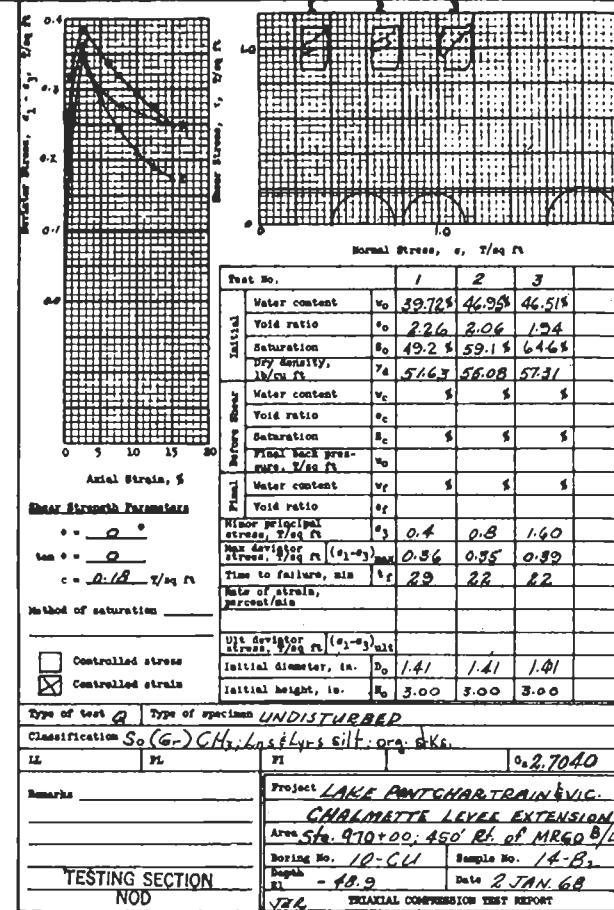 0.4
0.3
0.2
0.1
0.0
Deviator Stress, σ1 - σ3, T/sq ft
0 5 10 15 20
Axial Strain, %
1 2 3
1.0
0
Shear Stress, τ, T/sq ft
0 1.0
Normal Stress, σ, T/sq ft
Shear Strength Parameters
φ = 0 °
tan φ = 0
c = 0.18 T/sq ft
Method of saturation
Controlled stress
Controlled strain
Test No. 1 2 3
Initial
Water content w₀ 39.72% 46.95% 46.51%
Void ratio e₀ 2.26 2.06 1.94
Saturation S₀ 49.2 % 59.1 % 64.6 %
Dry density, lb/cu ft γd 51.63 55.08 57.31
Before Shear
Water content wc % % %
Void ratio ec
Saturation Sc % % %
Final back pressure, T/sq ft u₀
Final
Water content wf % % %
Void ratio ef
Minor principal stress, T/sq ft σ3 0.4 0.8 1.60
Max deviator stress, T/sq ft (σ1-σ3)max 0.36 0.35 0.39
Time to failure, min tf 29 22 22
Rate of strain, percent/min
Ult deviator stress, T/sq ft (σ1-σ3)ult
Initial diameter, in. D₀ 1.41 1.41 1.41
Initial height, in. H₀ 3.00 3.00 3.00
Type of test Q Type of specimen UNDISTURBED
Classification So (Gr) CH3; Lns & Lyrs silt; org.
LL PL PI Gs 2.7040
Remarks
TESTING SECTION
NOD
Project LAKE PONTCHARTRAIN & VIC.
CHALMETTE LEVEE EXTENSION
Area Sta. 970+00; 450' Rt. of MRGO B/L
Boring No. 10-CU Sample No. 14-B2
Depth El -48.9 Date 2 JAN. 68
TRIAXIAL COMPRESSION TEST REPORT